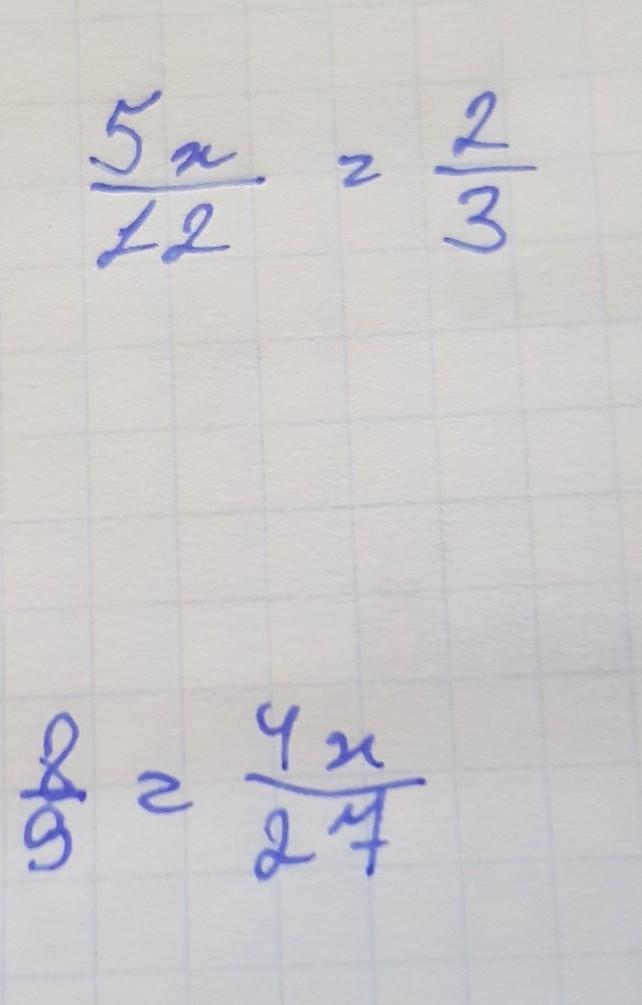 5x/12 = 2/3
8/9 = 4x/27